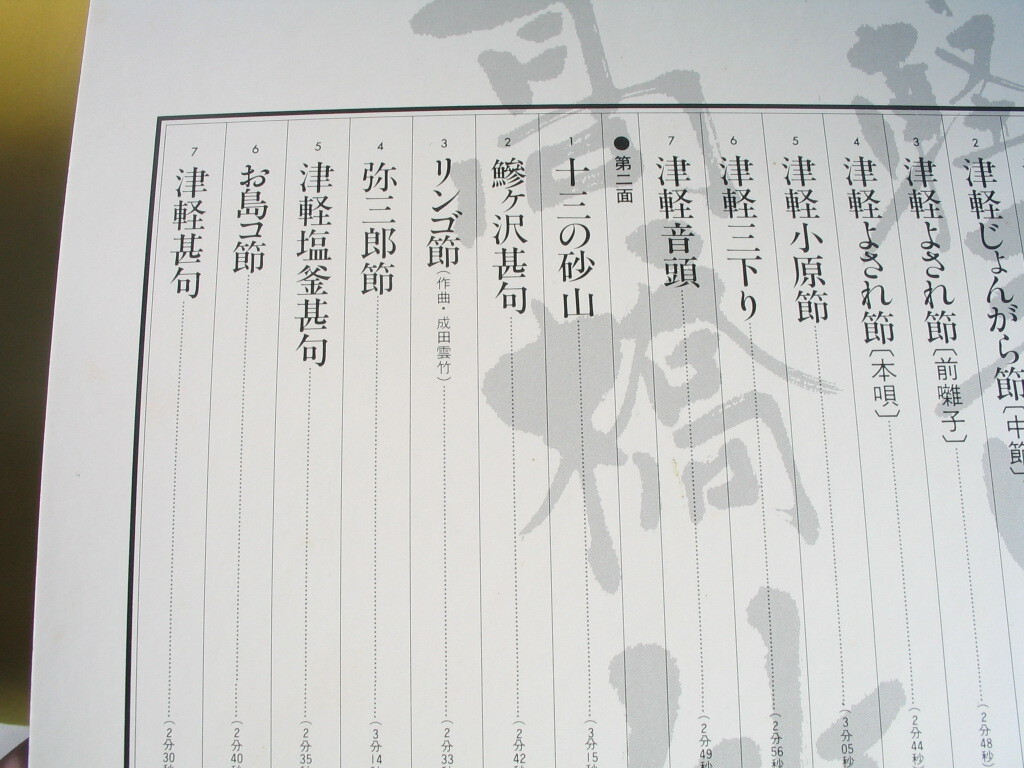 2 津軽じょんがら節〔中節〕 (2分48秒)
3 津軽よされ節〔前囃子〕 (2分44秒
4 津軽よされ節〔本唄〕 (3分05秒
5 津軽小原節 (2分56秒
6 津軽三下り (2分49秒
7 津軽音頭
●第二面
1 十三の砂山 (3分15秒
2 鰺ヶ沢甚句 (2分42秒
3 リンゴ節(作曲・成田雲竹) (2分33
4 弥三郎節 (3分14
5 津軽塩釜甚句 (2分35
6 お島コ節 (2分40
7 津軽甚句 (2分30